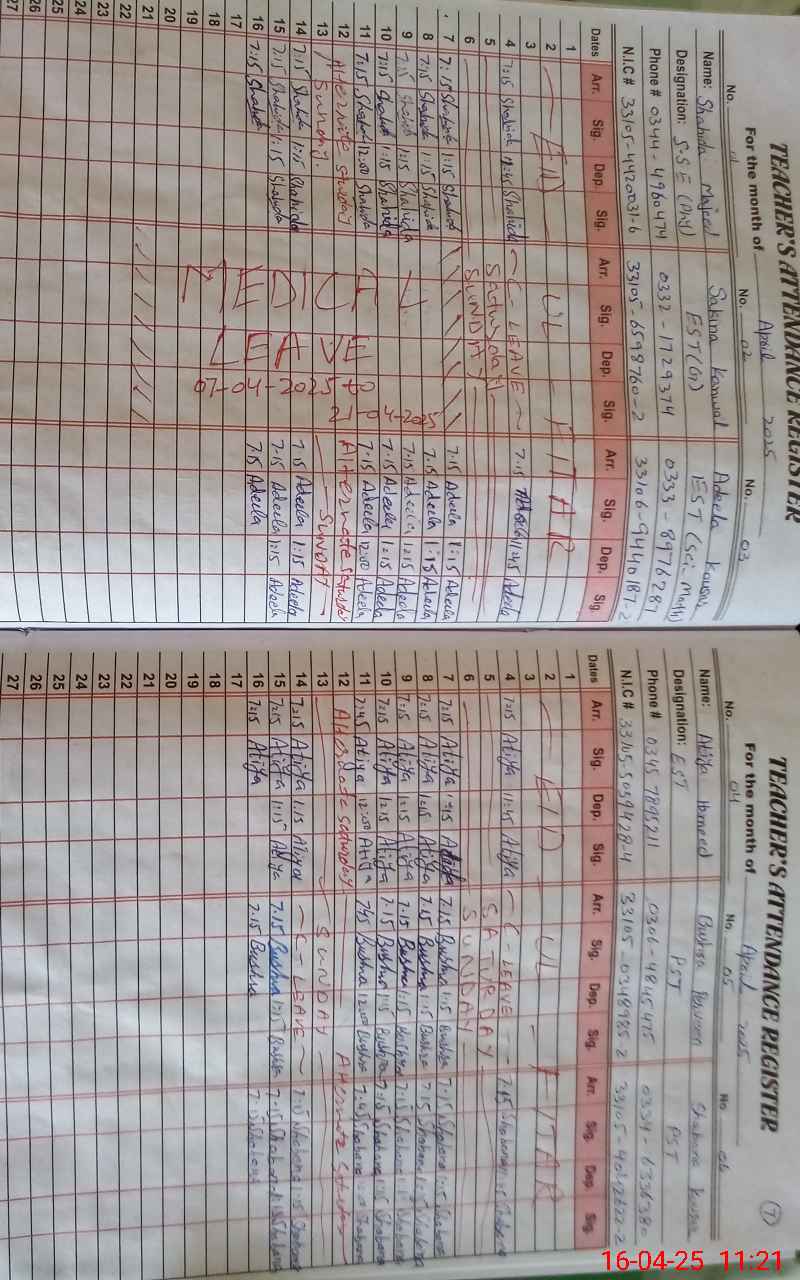 TEACHER'S ATTENDANCE REGISTER
For the month of April 2025
No. 01 No. 02 No. 03
Name: Shahida Majeed Sakina Kanwal Adeela Kousar
Designation: S.S.E (Phy) EST (G) EST (Sci. Math)
Phone # 0344-4960474 0332-1729374 0333-8976287
N.I.C # 33105-4420031-6 33105-6598760-2 33106-9440187-2
Dates Arr. Sig. Dep. Sig. Arr. Sig. Dep. Sig. Arr. Sig. Dep. Sig.
1
2 EID UL FITAR
3
4 7:15 Shahida 11:45 Shahida C-LEAVE 7:15 Adeela 11:45 Adeela
5 Saturday
6 SUNDAY
7 7:15 Shahida 1:15 Shahida 7:15 Adeela 1:15 Adeela
8 7:15 Shahida 1:15 Shahida 7:15 Adeela 1:15 Adeela
9 7:15 Shahida 1:15 Shahida 7:15 Adeela 1:15 Adeela
10 7:15 Shahida 1:15 Shahida 7:15 Adeela 1:15 Adeela
11 7:15 Shahida 12:00 Shahida 7:15 Adeela 12:00 Adeela
12 Alternate Alternate Saturday
13 Sunday SUNDAY
14 7:15 Shahida 1:15 Shahida 7:15 Adeela 1:15 Adeela
15 7:15 Shahida 1:15 Shahida 7:15 Adeela 1:15 Adeela
16 7:15 Shahida 7:15 Adeela
17
18
19
20
21
22
23
24
25
26
27
LEAVE
07-04-2025 to
21-04-2025
TEACHER'S ATTENDANCE REGISTER
7
For the month of April 2025
No. 04 No. 05 No. 06
Name: Atiya Hameed Bushra Parveen Shabana Kousar
Designation: EST PST PST
Phone # 0345 7895211 0306-4845415
N.I.C # 33105-0348985-2
Dates Arr. Sig. Dep. Sig. Arr. Sig. Dep. Sig. Arr. Sig. Dep. Sig.
1
2 EID UL FITAR
3
4 7:15 Atiya 11:45 Atiya C-LEAVE 7:15 Shabana 11:45 Shabana
5 SATURDAY
6 SUNDAY
7 7:15 Atiya 1:15 Atiya 7:15 Bushra 1:15 Bushra 7:15 Shabana 1:15 Shabana
8 7:15 Atiya 1:15 Atiya 7:15 Bushra 1:15 Bushra 7:15 Shabana 1:15 Shabana
9 7:15 Atiya 1:15 Atiya 7:15 Bushra 1:15 Bushra 7:15 Shabana 1:15 Shabana
10 7:15 Atiya 1:15 Atiya 7:15 Bushra 1:15 Bushra 7:15 Shabana 1:15 Shabana
11 7:45 Atiya 12:00 Atiya 7:45 Bushra 12:00 Bushra 7:45 Shabana Shabana
12 Alternate Saturday Alternate Saturday
13 SUNDAY
14 7:15 Atiya 1:15 Atiya C-LEAVE 7:15 Shabana 1:15 Shabana
15 7:15 Atiya 1:15 Atiya 7:15 Bushra 1:15 Bushra 7:15 Shabana 1:15 Shabana
16 7:15 Atiya 7:15 Bushra 7:15 Shabana
17
18
19
20
21
22
23
24
25
26
27
16-04-25 11:21